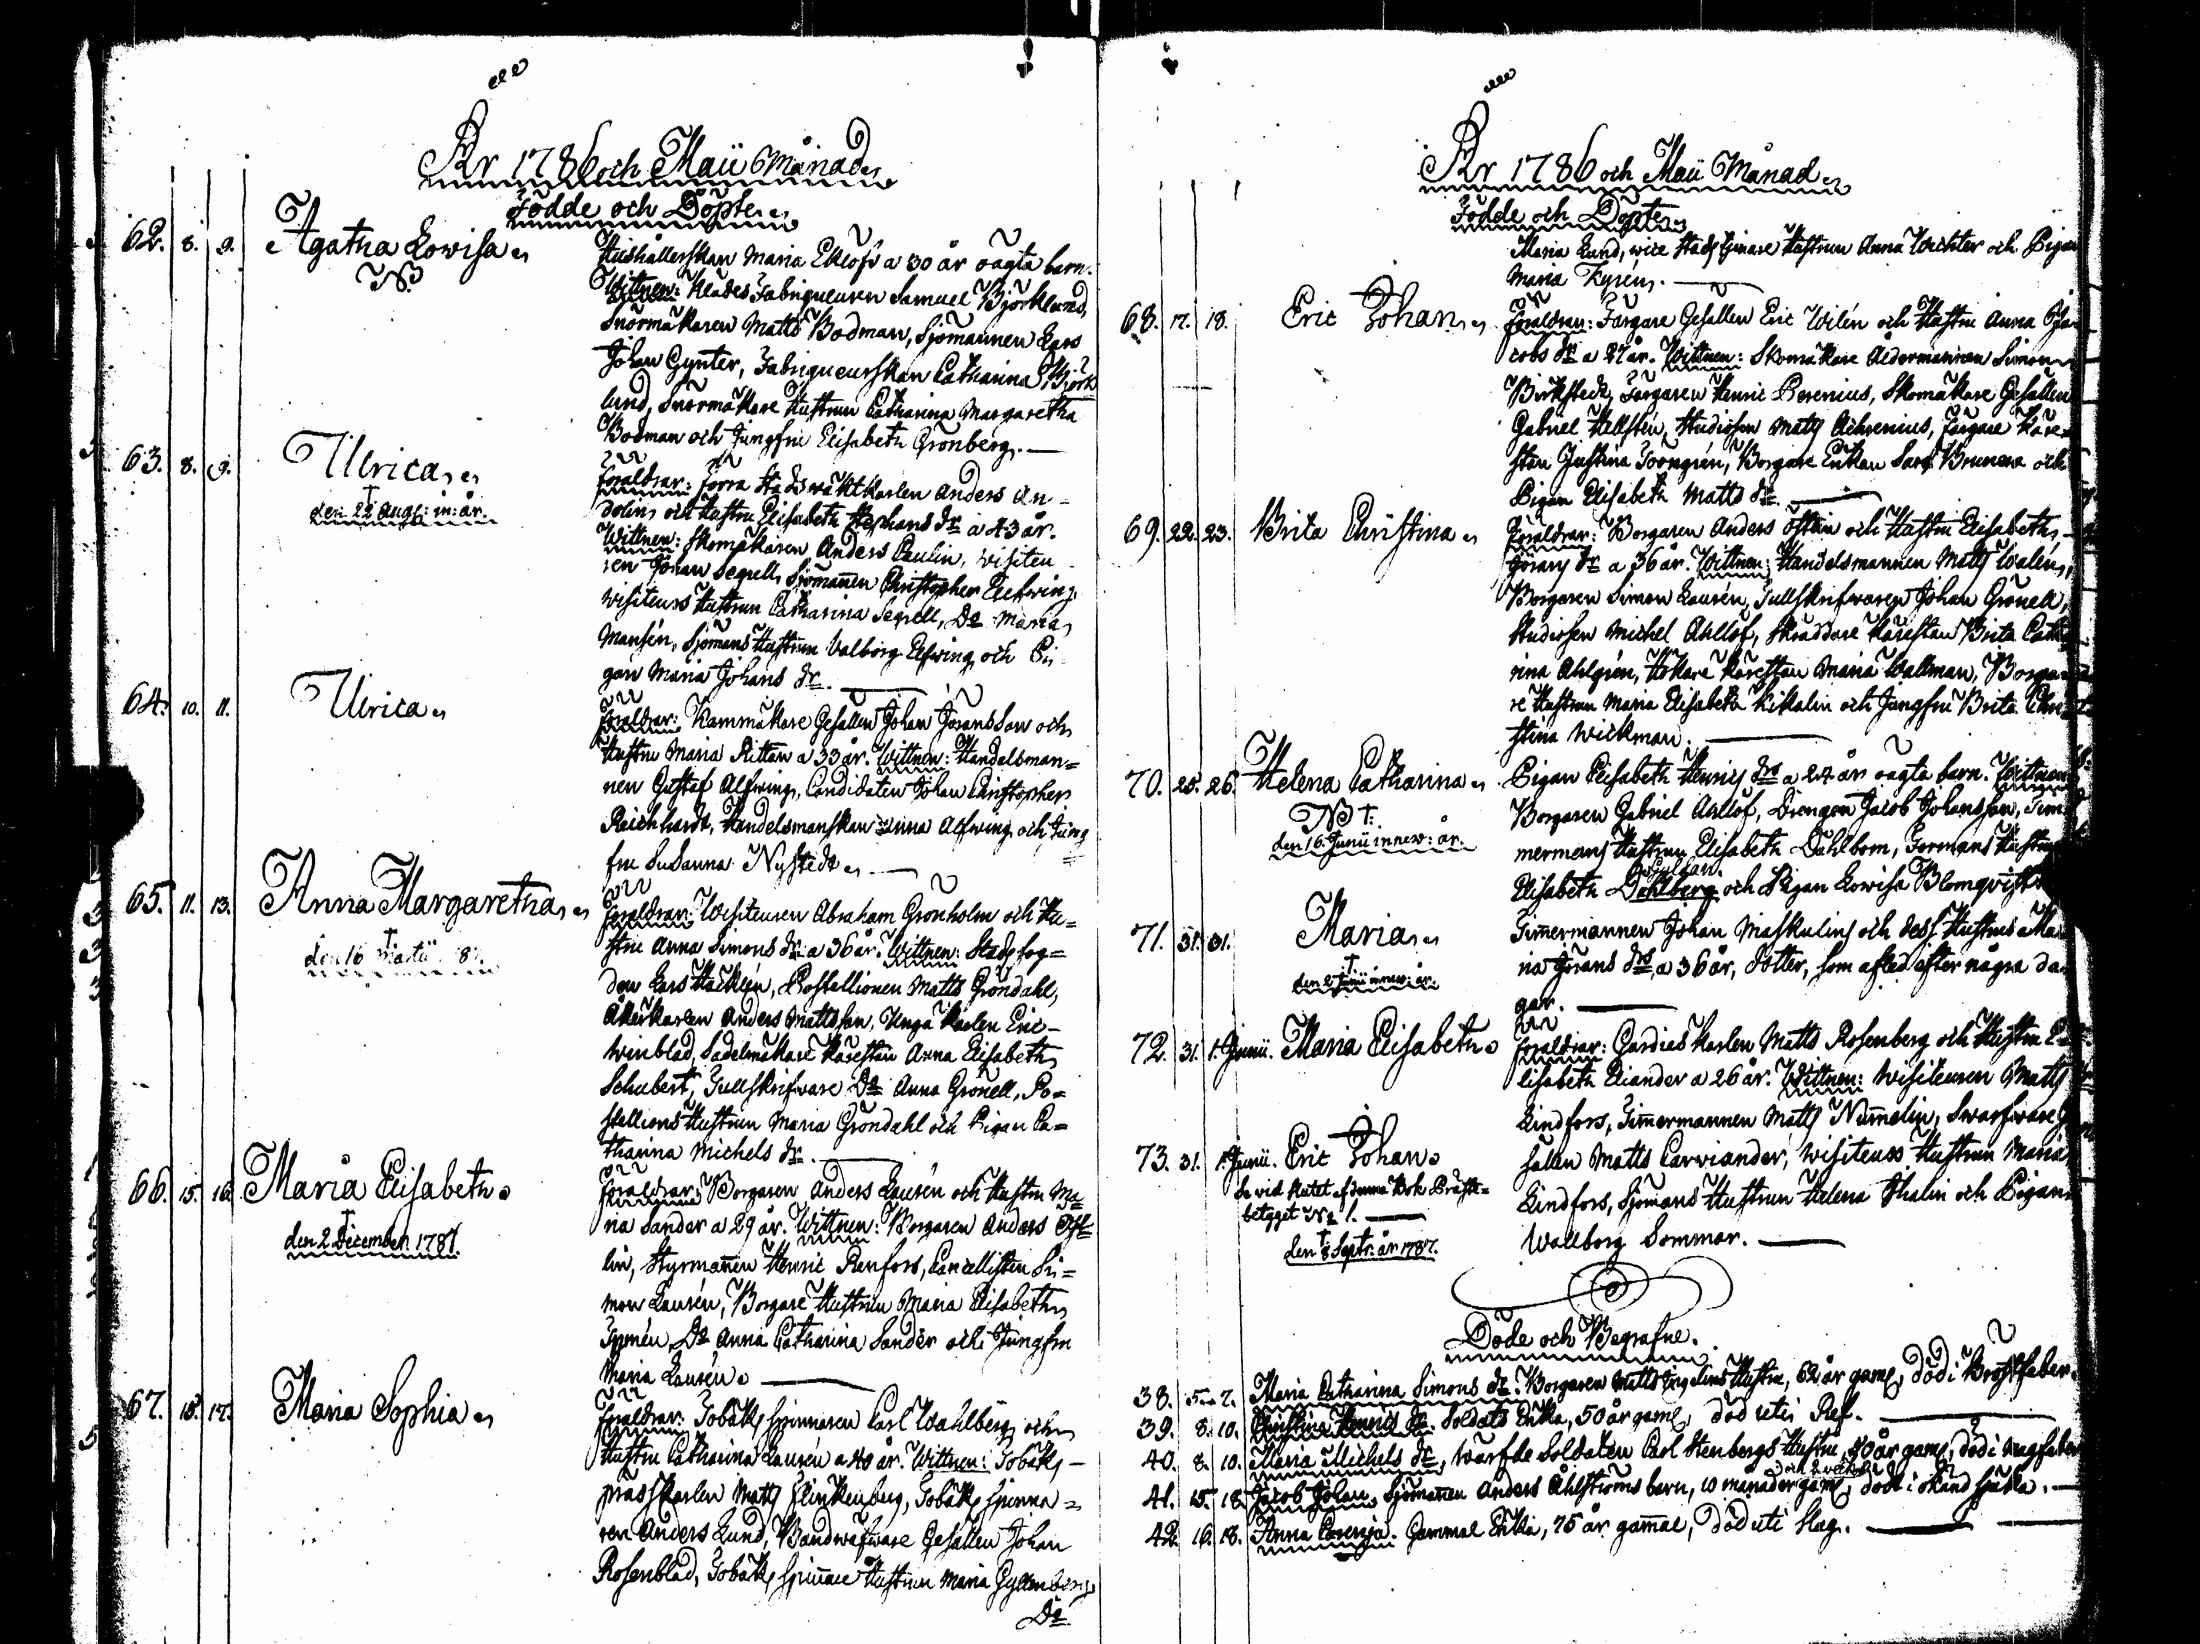 År 1786 och Maii Månad
Födde och Döpte
62. 8. 9. Agatha Lovisa
NB.
Hushållerskan Maria Eklöfs a 30 år oägta barn.
Wittnen: Klädes Fabriqueuren Samuel Björklund,
Snörmakaren Matts Bodman, Sjömannen Lars
Johan Gynter, Fabriqueurskan Catharina Björk
lund, Snörmakare Hustrun Catharina Margaretha
Bodman och Jungfru Elisabeth Grönberg.
63. 8. 9. Ulrica
†
den 22 Aug: in: år.
Föräldrar: Förra Stadswaktkarlen Anders An-
dolin och Hustru Elisabeth Stephans dr a 43 år.
Wittnen: Skomakaren Anders Paulin, Visiteu
ren Johan Segrell, Sjömannen Christopher Elfwing,
Visiteurs Hustrun Catharina Segrell, Do Maria
Mansén, Sjömans Hustrun Valborg Elfwing och Pi-
gan Maria Johans dr.
64. 10. 11. Ulrica
Föräldrar: Kammakare Gesällen Johan Jöransson och
Hustru Maria Rittan a 33 år. Wittnen: Handelsman=
nen Gustaf Alfwing, Candidaten Johan Christopher
Reinhardt, Handelsmanskan Anna Alfwing och Jung
fru Susanna Nystedt
65. 11. 13. Anna Margaretha
†
den 16 Martii 8
Föräldrar: Visiteuren Abraham Grönholm och Hu=
stru Anna Simons dr a 36 år. Wittnen: Stadsfog=
den Lars Hacklén, Postillionen Matts Gröndahl,
Åkerkarlen Anders Mattsson, Unga Karlen Eric
Winblad, Sadelmakare Kärestan Anna Elisabeth
Schubert, Tullskrifvare Do Anna Grönell, Po=
stillions Hustrun Maria Gröndahl och Pigan Ca=
tharina Michels dr.
66. 15. 16. Maria Elisabeth
†
den 2 December 1787.
Föräldrar: Borgaren Anders Laurén och Hustru Ma
ria Sander a 29 år. Wittnen: Borgaren Anders
lin, Styrmannen Henric Renfors, Cancellisten Si=
mon Laurén, Borgare Hustrun Maria Elisabeth
Do Anna Catharina Sander och Jungfru
Maria Laurén
67. 15. 17. Maria Sophia
Föräldrar: Tobaks spinnaren Carl Wahlberg och
Hustru Catharina Laurén a 40 år. Wittnen: Tobaks
presskarlen Matts Klinkenberg, Tobaks spinna=
ren Anders Lund, Bandwäfware Gesällen Johan
Rosenblad, Tobaks spinnare Hustrun Maria Gyllenberg
Do
År 1786 och Maii Månad
Födde och Döpte
Maria Lund, vice Stads Hustrun Anna Wechter och Pigan
Maria Fyrén.
68. 17. 18. Eric Johan
Föräldrar: Färgare Gesällen Eric Wilén och Hustru Anna Ja
cobs dr a 27 år. Wittnen: Skomakare Åldermannen Simon
Birkstedt, Färgaren Henric Berenius, Skomakare Gesällen
Gabriel Hellstén, Studiosen Matts Achrenius, Färgare Käre
stan Justina Forsgrén, Borgare Enkan Sara Brunera och
Pigan Elisabeth Matts dr.
69. 22. 23. Brita Christina
Föräldrar: Borgaren Anders Östen och Hustru Elisabeth
Jörans dr a 36 år. Wittnen: Handelsmannen Matts Walén,
Borgaren Simon Laurén, Tullskrifwaren Johan Grönell,
Studiosen Michel Ahllöf, Skräddare Kärestan Brita Catha
rina Ahlgrén, Kärestan Maria Wallman, Borga
re Hustrun Maria Elisabeth Kikalin och Jungfru Brita Chri
stina Wickman.
70. 25. 26. Helena Catharina
NB †.
den 16 Junii innew: år.
Pigan Elisabeth Henrics drs a 24 år oägta barn. Wittnen
Borgaren Gabriel Ahllöf, Drengen Jacob Johansson, Tim
mermans Hustrun Elisabeth Dahlbom, Formans Hustrun
Elisabeth Dahlberg och Pigan Lowisa Blomqvist
71. 31. 31. Maria
†
den 2 Junii innew: år.
Timmermannen Johan Maskulins och dess Hustrus Ma
ria Jörans drs a 36 år, dotter, som afled efter några da
gar.
72. 31. 1. Junii. Maria Elisabeth
Föräldrar: Gardies Karlen Matts Rosenberg och Hustru E
lisabeth Eliander a 26 år. Wittnen: Visiteuren Matts
Lindfors, Timmermannen Matts Nummelin, Swarfware Ge
sällen Matts Carviander, Visiteurs Hustrun Maria
Lindfors, Sjömans Hustrun Helena Thalin och Pigan
Wallborg Sommar.
73. 31. 1. Junii. Eric Johan
Se vid slutet af denna Bok Präste=
betyget No 1.
†
den 8 Septr. år 1787.
Döde och Begrafne.
38. 5. 7. Maria Catharina Simons dr. Borgaren Matts Hustru, 62 år gaml, död i Bröstfeber.
39. 8. 10. Christina Henrics dr. Soldats Enka, 50 år gaml, död uti Ref.
40. 8. 10. Maria Michels dr, Wärfde Soldaten Carl Stenbergs Hustru, 40 år gaml, död i magfeber
41. 15. 18. Jacob Johan, Sjömannen Anders Ahlströms barn, 10 månader gaml, död i okänd sjukdom.
42. 16. 18. Anna Gammal Enka, 75 år gammal, död uti slag.